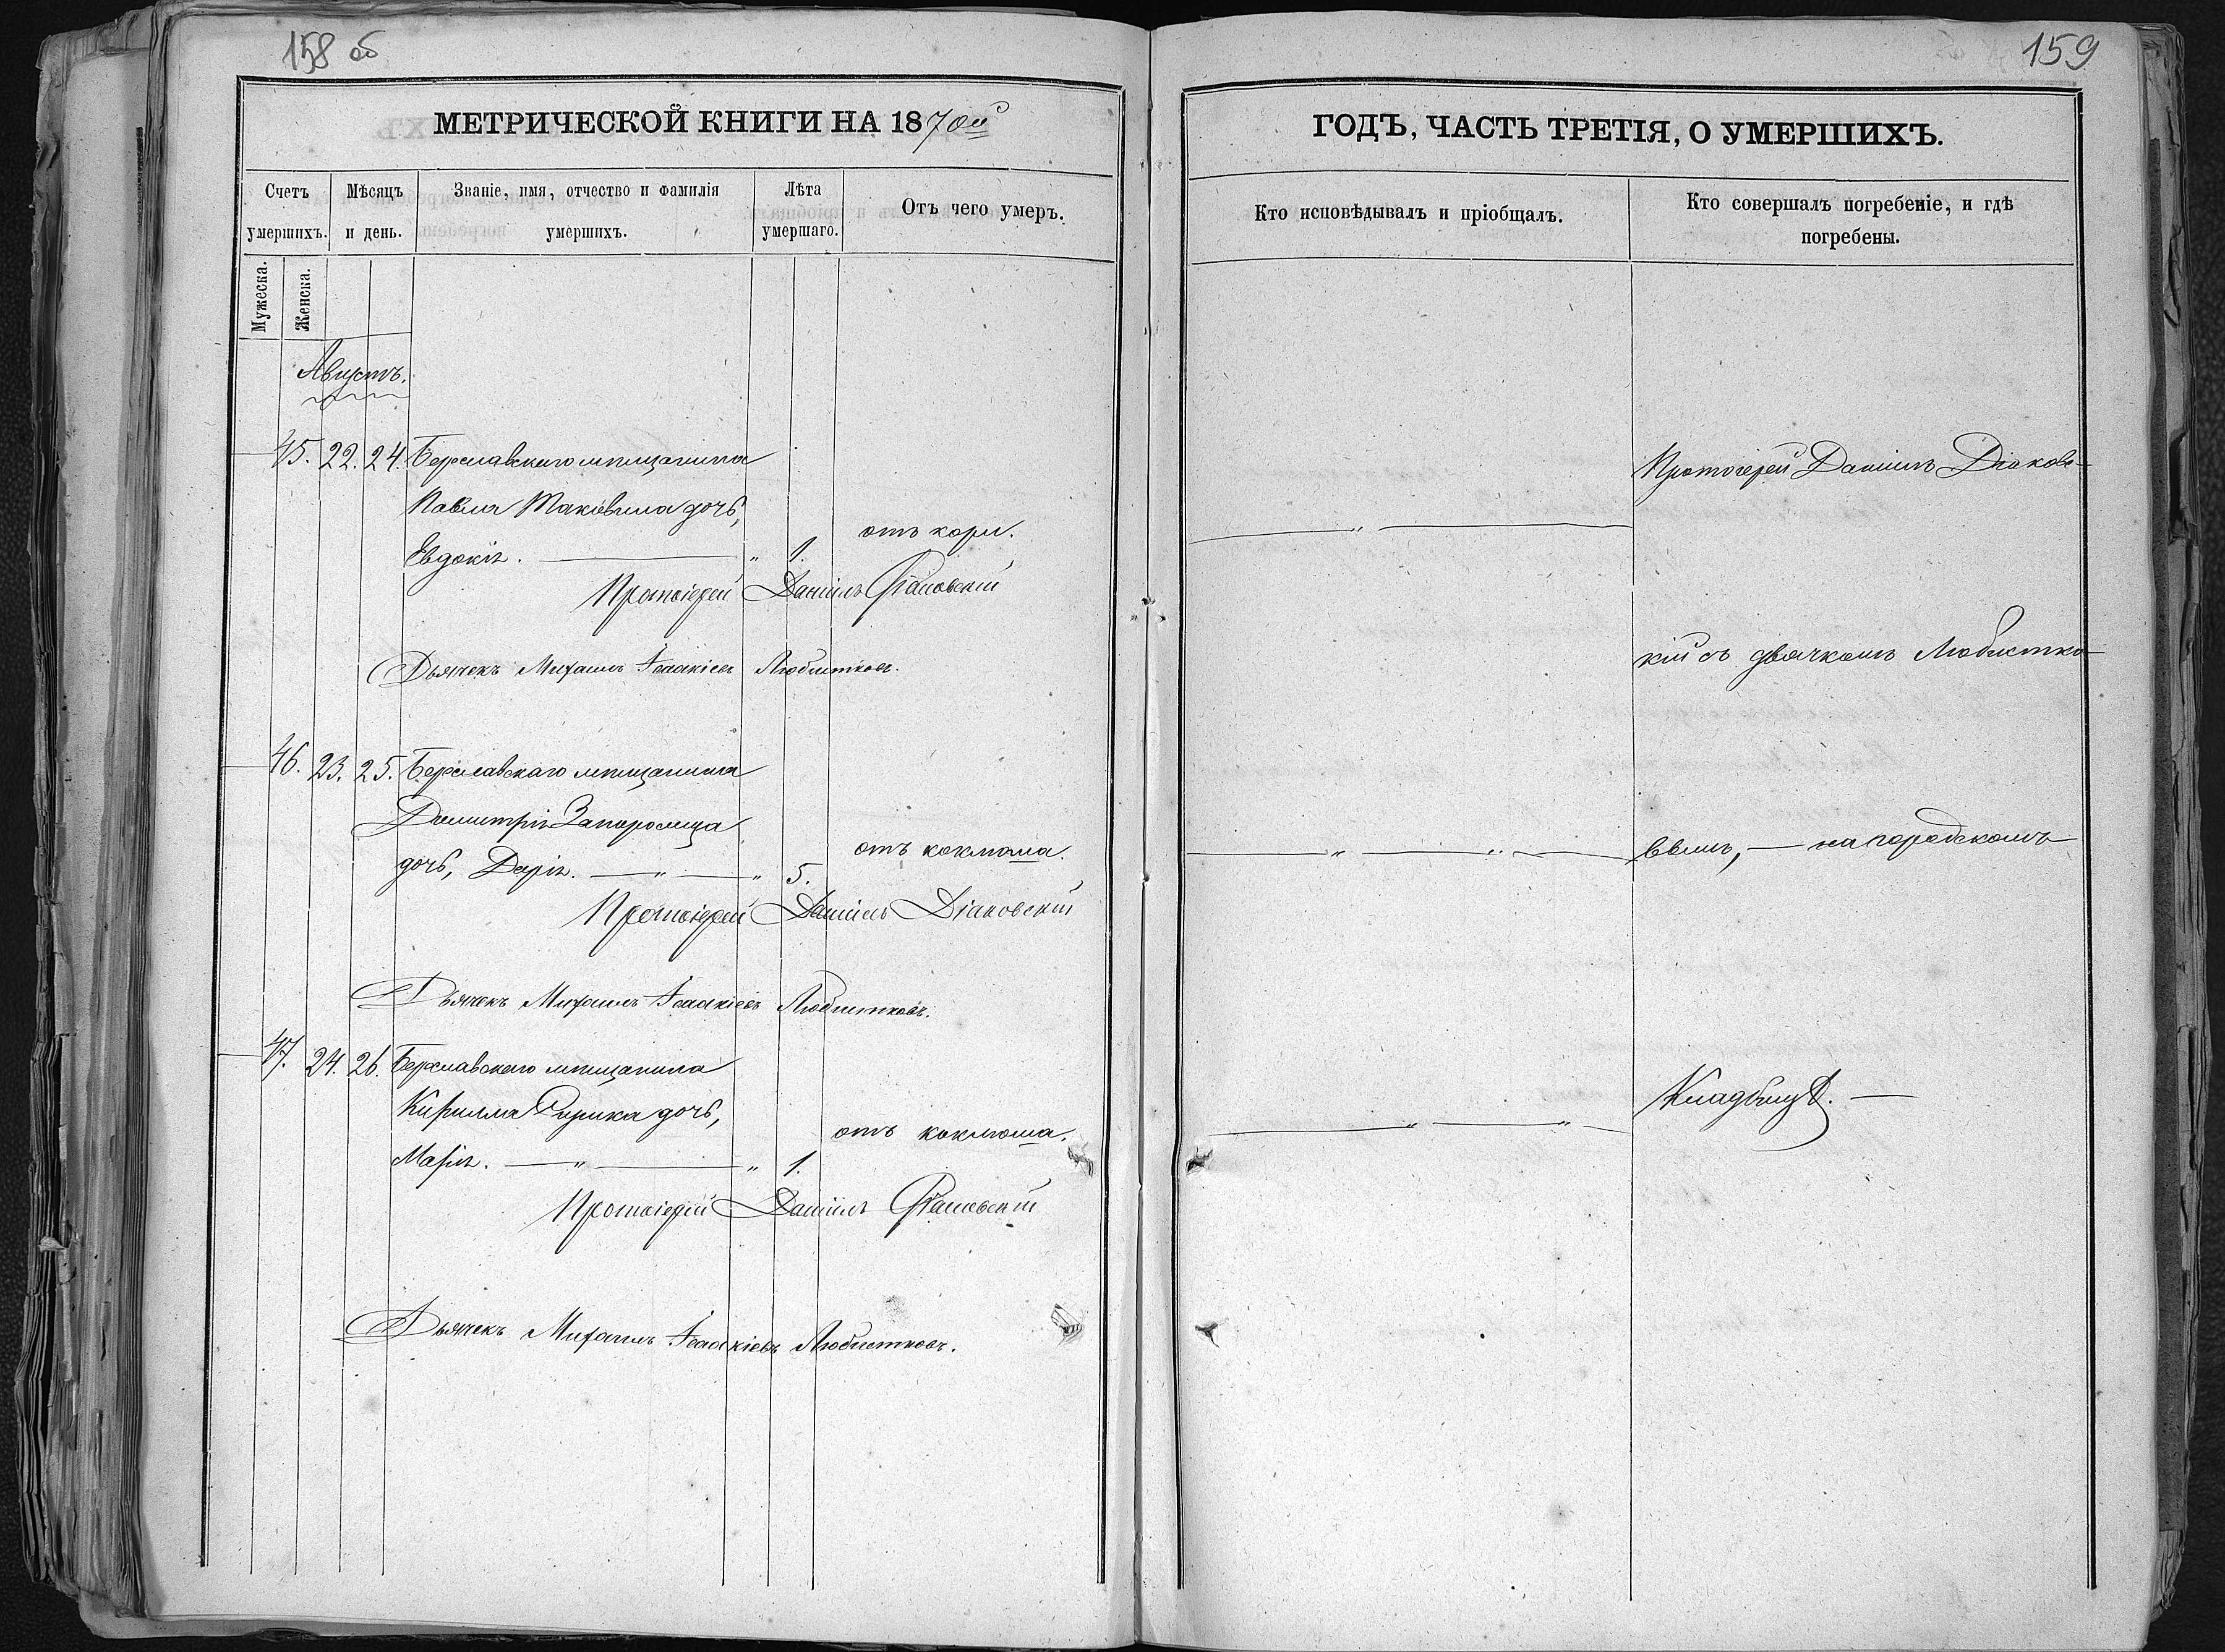 158 об
МЕТРИЧЕСКОЙ КНИГИ НА 1870й
Счетъ умершихъ.
Мѣсяцъ и день.
Званіе, имя, отчество и фамилія умершихъ.
Лѣта умершаго.
Отъ чего умеръ.
Мужеска.
Женска.
Августъ.
45. 22. 24. Бериславскаго мѣщанина
Павла дочь,
Евдокія. — " 1. отъ кори.
Протоіерей Даніилъ Діаковскій
Дьячекъ Михаилъ Ісаакіевъ Любистковъ.
46. 23. 25. Бериславскаго мѣщанина
Димитрія Запорожца
дочь, Дарія. — " — " 5. отъ коклюша.
Протоіерей Даніилъ Діаковскій
Дьячекъ Михаилъ Ісаакіевъ Любистковъ.
47. 24. 26. Бериславскаго мѣщанина
Кирилла дочь,
Марія. — " — " 1. отъ коклюша.
Протоіерей Даніилъ Діаковскій
Дьячекъ Михаилъ Ісаакіевъ Любистковъ.
159
ГОДЪ, ЧАСТЬ ТРЕТІЯ, О УМЕРШИХЪ.
Кто исповѣдывалъ и пріобщалъ.
Кто совершалъ погребеніе, и гдѣ
погребены.
Протоіерей Даніилъ Діаковс-
— " —
кій съ дьячкомъ Любистко-
— " — " — вымъ, — на городскомъ
Кладбищѣ. —
— " — " —